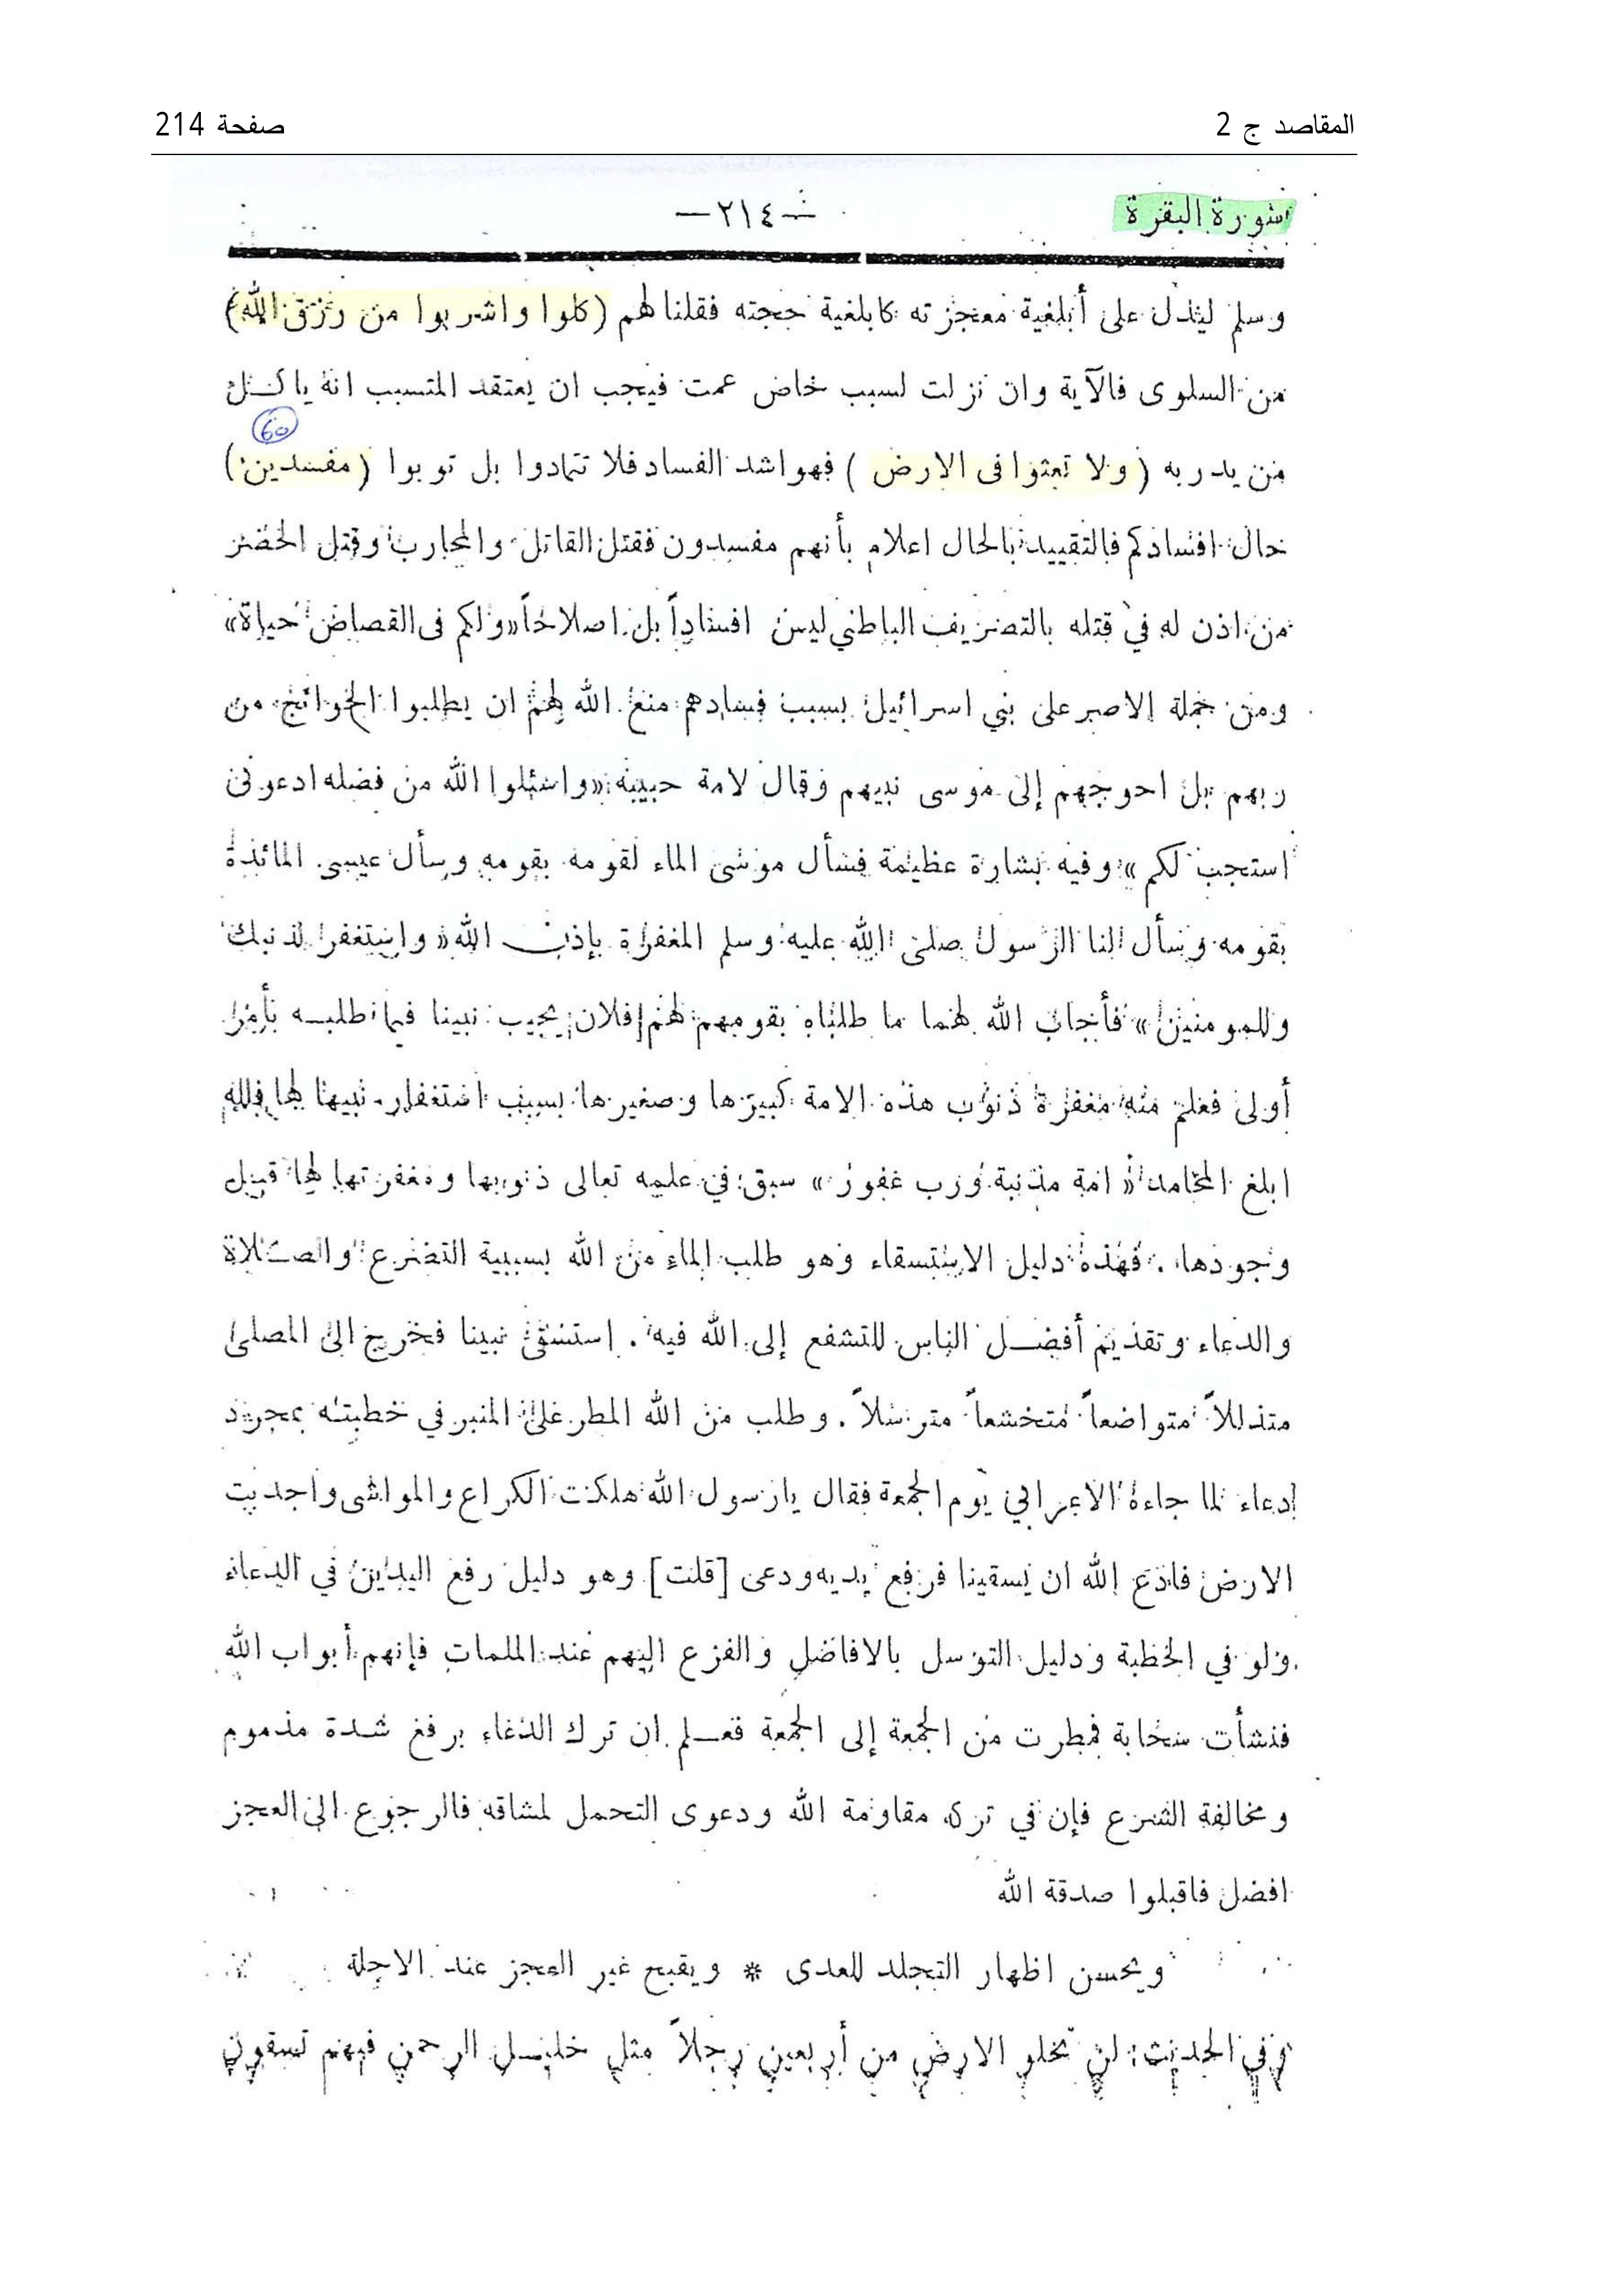 المقاصد ج 2 صفحة 214
سورة البقرة —٢١٤—
وسلم ليدل على أبلغية معجزته كابلغية حجته فقلنا لهم (كلوا واشربوا من رزق الله)
من السلوى فالآية وان نزلت لسبب خاص عمت فيجب ان يعتقد المتسبب انه ياكل
60
من يد ربه (ولا تعثوا فى الارض) فهو اشد الفساد فلا تتمادوا بل توبوا (مفسدين)
حال افسادكم فالتقييد بالحال اعلام بأنهم مفسدون فقتل القاتل والمحارب وقتل الخضر
من اذن له في قتله بالتصريف الباطني ليس افساداً بل اصلاحاً «ولكم فى القصاص حياة»
ومن جملة الاصر على بني اسرائيل بسبب فسادهم منع الله لهم ان يطلبوا الحوائج من
ربهم بل احوجهم إلى موسى نبيهم وقال لامة حبيبه «واسئلوا الله من فضله ادعونى
استجب لكم» وفيه بشارة عظيمة فسأل موسى الماء لقومه بقومه وسأل عيسى المائدة
بقومه وسأل لنا الرسول صلى الله عليه وسلم المغفرة بإذن الله «واستغفر لذنبك
وللمومنين» فأجاب الله لهما ما طلباه بقومهم لهم فلان يجيب نبينا فيما طلبه بأمر
أولى فعلم منه مغفرة ذنوب هذه الامة كبيرها وصغيرها بسبب استغفار نبيها لها فلله
ابلغ المحامد «امة مذنبة ورب غفور» سبق في علمه تعالى ذنوبها ومغفرتها لها قبل
وجودها. فهذه دليل الاستسقاء وهو طلب الماء من الله بسببية التضرع والصلاة
والدعاء وتقديم أفضل الناس للتشفع إلى الله فيه. استسقى نبينا فخرج الى المصلى
متذللاً متواضعاً متخشعاً مترسلاً. وطلب من الله المطر على المنبر في خطبته بمجرد
دعاء لما جاءه الاعرابي يوم الجمعة فقال يا رسول الله هلكت الكراع والمواشى واجدبت
الارض فادع الله ان يسقينا فرفع يديه ودعى [قلت] وهو دليل رفع اليدين في الدعاء
ولو في الخطبة ودليل التوسل بالافاضل والفزع اليهم عند الملمات فإنهم أبواب الله
فنشأت سحابة فمطرت من الجمعة إلى الجمعة فعلم ان ترك الدعاء برفع شدة مذموم
ومخالفة الشرع فإن في تركه مقاومة الله ودعوى التحمل لمشاقه فالرجوع الى العجز
افضل فاقبلوا صدقة الله
ويحسن اظهار التجلد للعدى * ويقبح غير العجز عند الاجلة
وفي الحديث: لن تخلو الارض من أربعين رجلاً مثل خليل الرحمن فبهم تسقون